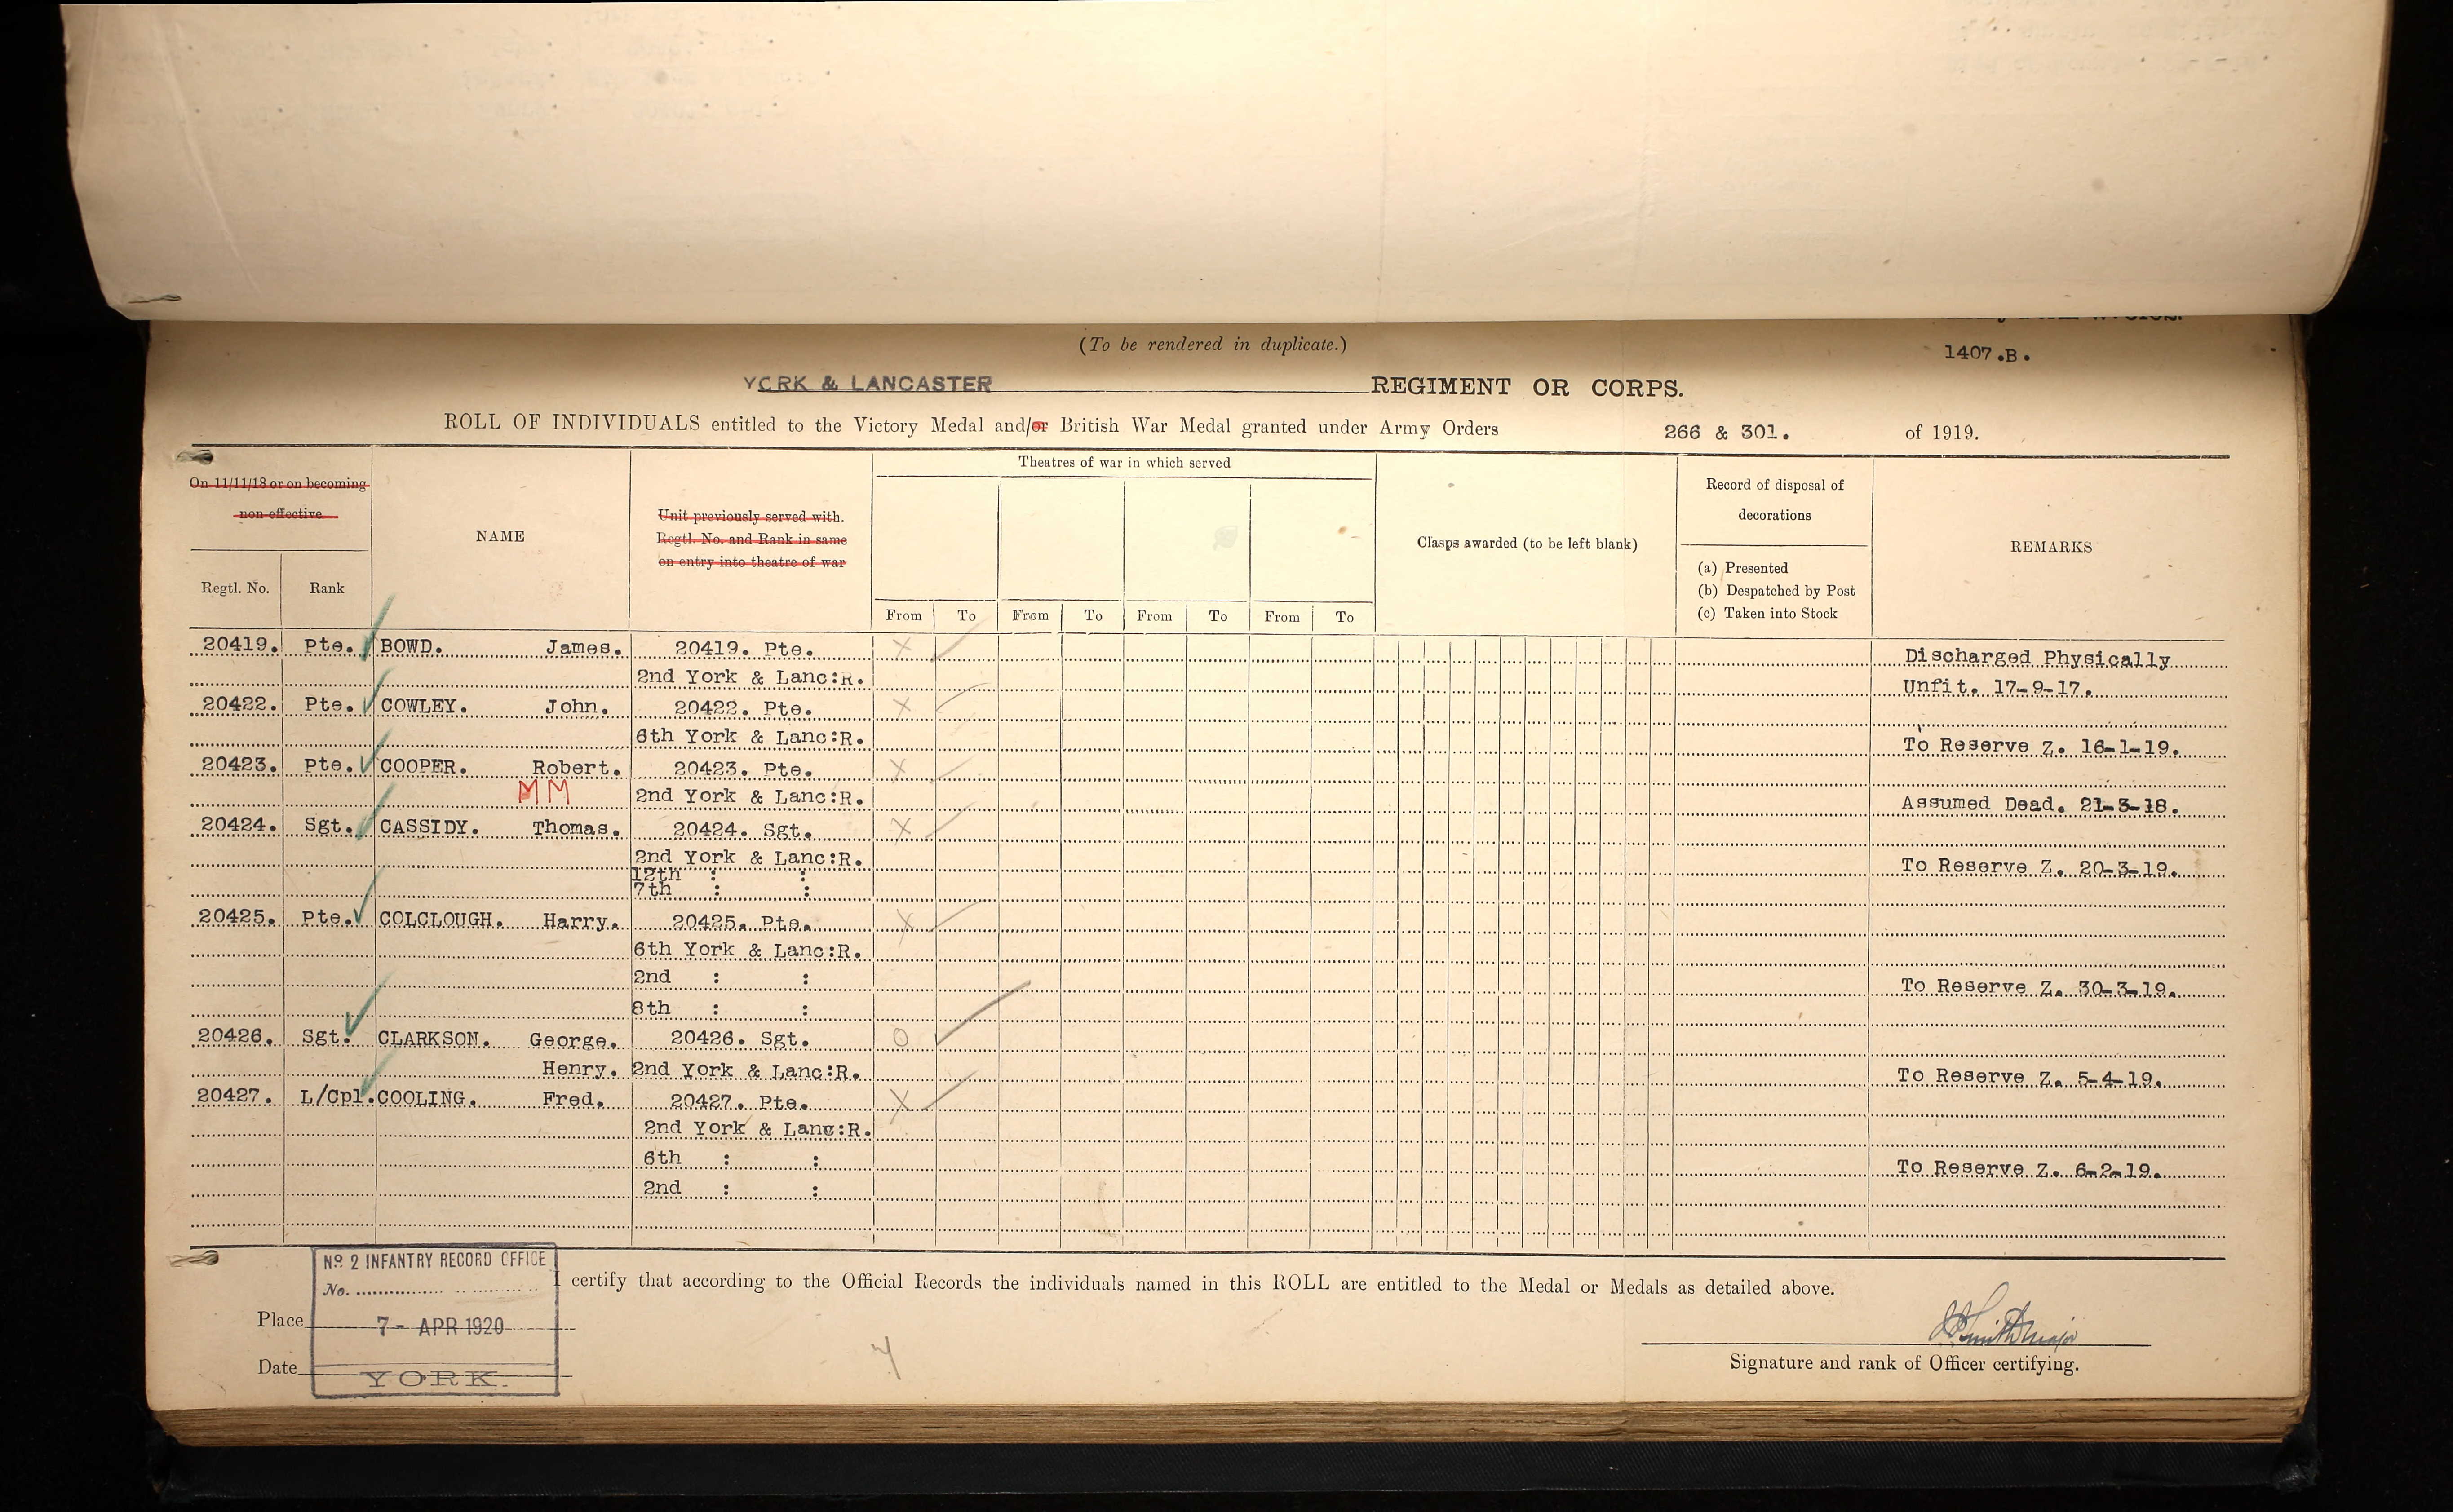 (To be rendered in duplicate.)
1407.B.
YORK & LANCASTER REGIMENT OR CORPS.
ROLL OF INDIVIDUALS entitled to the Victory Medal and/or British War Medal granted under Army Orders 266 & 301. of 1919.
On 11/11/18 or on becoming
non-effective
Regtl. No. Rank
NAME
Unit previously served with.
Regtl. No. and Rank in same
on entry into theatre of war
Theatres of war in which served
From To From To From To From To
Clasps awarded (to be left blank)
Record of disposal of
decorations
(a) Presented
(b) Despatched by Post
(c) Taken into Stock
REMARKS
20419. Pte. BOWD. James. 20419. Pte. X Discharged Physically
2nd York & Lanc:R. Unfit. 17-9-17.
20422. Pte. COWLEY. John. 20422. Pte. X
6th York & Lanc:R. To Reserve Z. 16-1-19.
20423. Pte. COOPER. Robert. 20423. Pte. X
MM 2nd York & Lanc:R. Assumed Dead. 21-3-18.
20424. Sgt. CASSIDY. Thomas. 20424. Sgt. X
2nd York & Lanc:R. To Reserve Z. 20-3-19.
12th : :
7th : :
20425. Pte. COLCLOUGH. Harry. 20425. Pte. X
6th York & Lanc:R.
2nd : : To Reserve Z. 30-3-19.
8th : :
20426. Sgt. CLARKSON. George. 20426. Sgt. O
Henry. 2nd York & Lanc:R. To Reserve Z. 5-4-19.
20427. L/Cpl. COOLING. Fred. 20427. Pte. X
2nd York & Lanc:R.
6th : : To Reserve Z. 6-2-19.
2nd : :
No 2 INFANTRY RECORD OFFICE
No.
7 - APR 1920
YORK.
I certify that according to the Official Records the individuals named in this ROLL are entitled to the Medal or Medals as detailed above.
Place
Date
Smith Major
Signature and rank of Officer certifying.